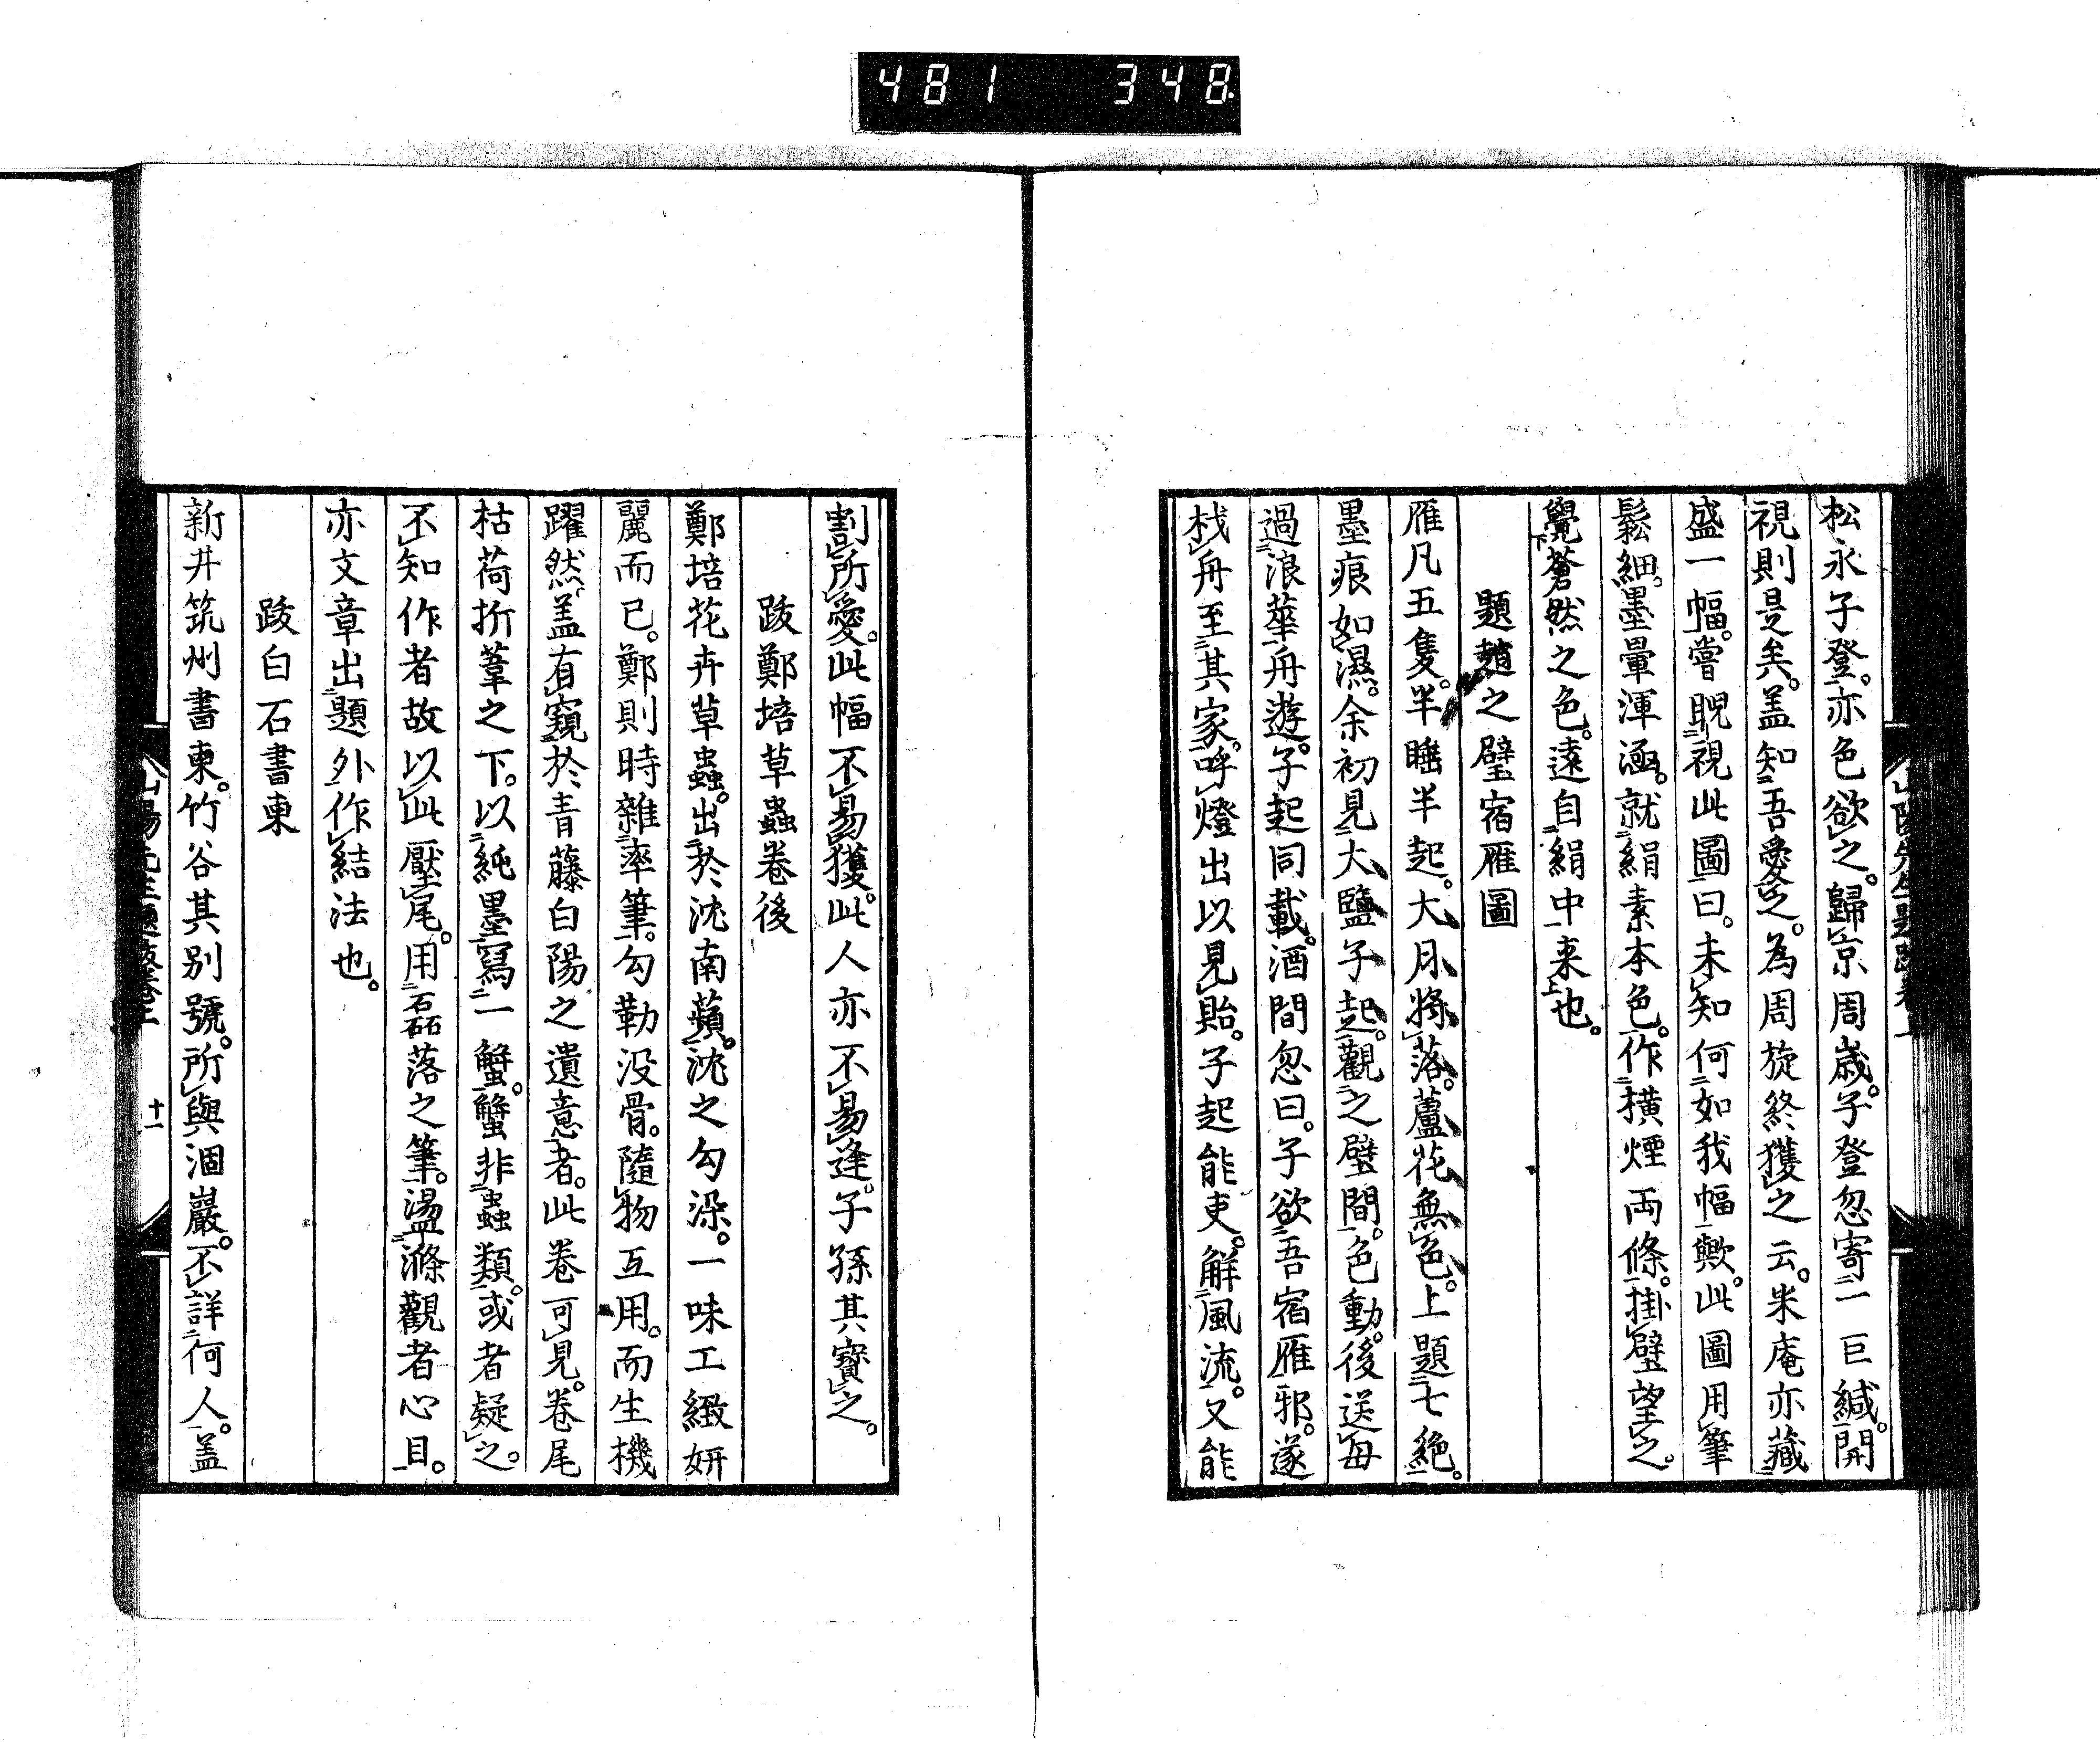 481 348
松永子登。亦色欲之。歸京周歳。子登忽寄一巨緘。開
視則是矣。盖知吾愛之。為周旋終獲之云。米庵亦藏
盛一幅。嘗睨視此圖曰。未知何如我幅歟。此圖用筆
鬆細。墨暈渾涵。就絹素本色。作横煙両條。掛壁望之。
覺蒼然之色。遠自絹中来也。
題趙之璧宿雁圖
雁凡五隻。半睡半起。大月將落。蘆花無色。上題七絶。
墨痕如濕。余初見大鹽子起。觀之壁間。色動。後送母
過浪華。舟遊。子起同載。酒間忽曰。子欲吾宿雁邪。遂
栈舟至其家。呼燈出以見貽。子起能吏。解風流。又能
割所愛。此幅不易獲。此人亦不易逢。子孫其寳之。
跋鄭培草蟲卷後
鄭培花卉草蟲。出於沈南蘋。沈之勾染。一味工緻妍
麗而已。鄭則時雜率筆。勾勒没骨。隨物互用。而生機
躍然。盖有窺於青藤白陽之遺意者。此卷可見。卷尾
枯荷折葦之下。以純墨寫一蟹。蟹非蟲類。或者疑之。
不知作者故以此壓尾。用磊落之筆。盪滌觀者心目。
亦文章出題外作結法也。
跋白石書柬
新井筑州書柬。竹谷其别號。所與涸巖。不詳何人。盖
十一